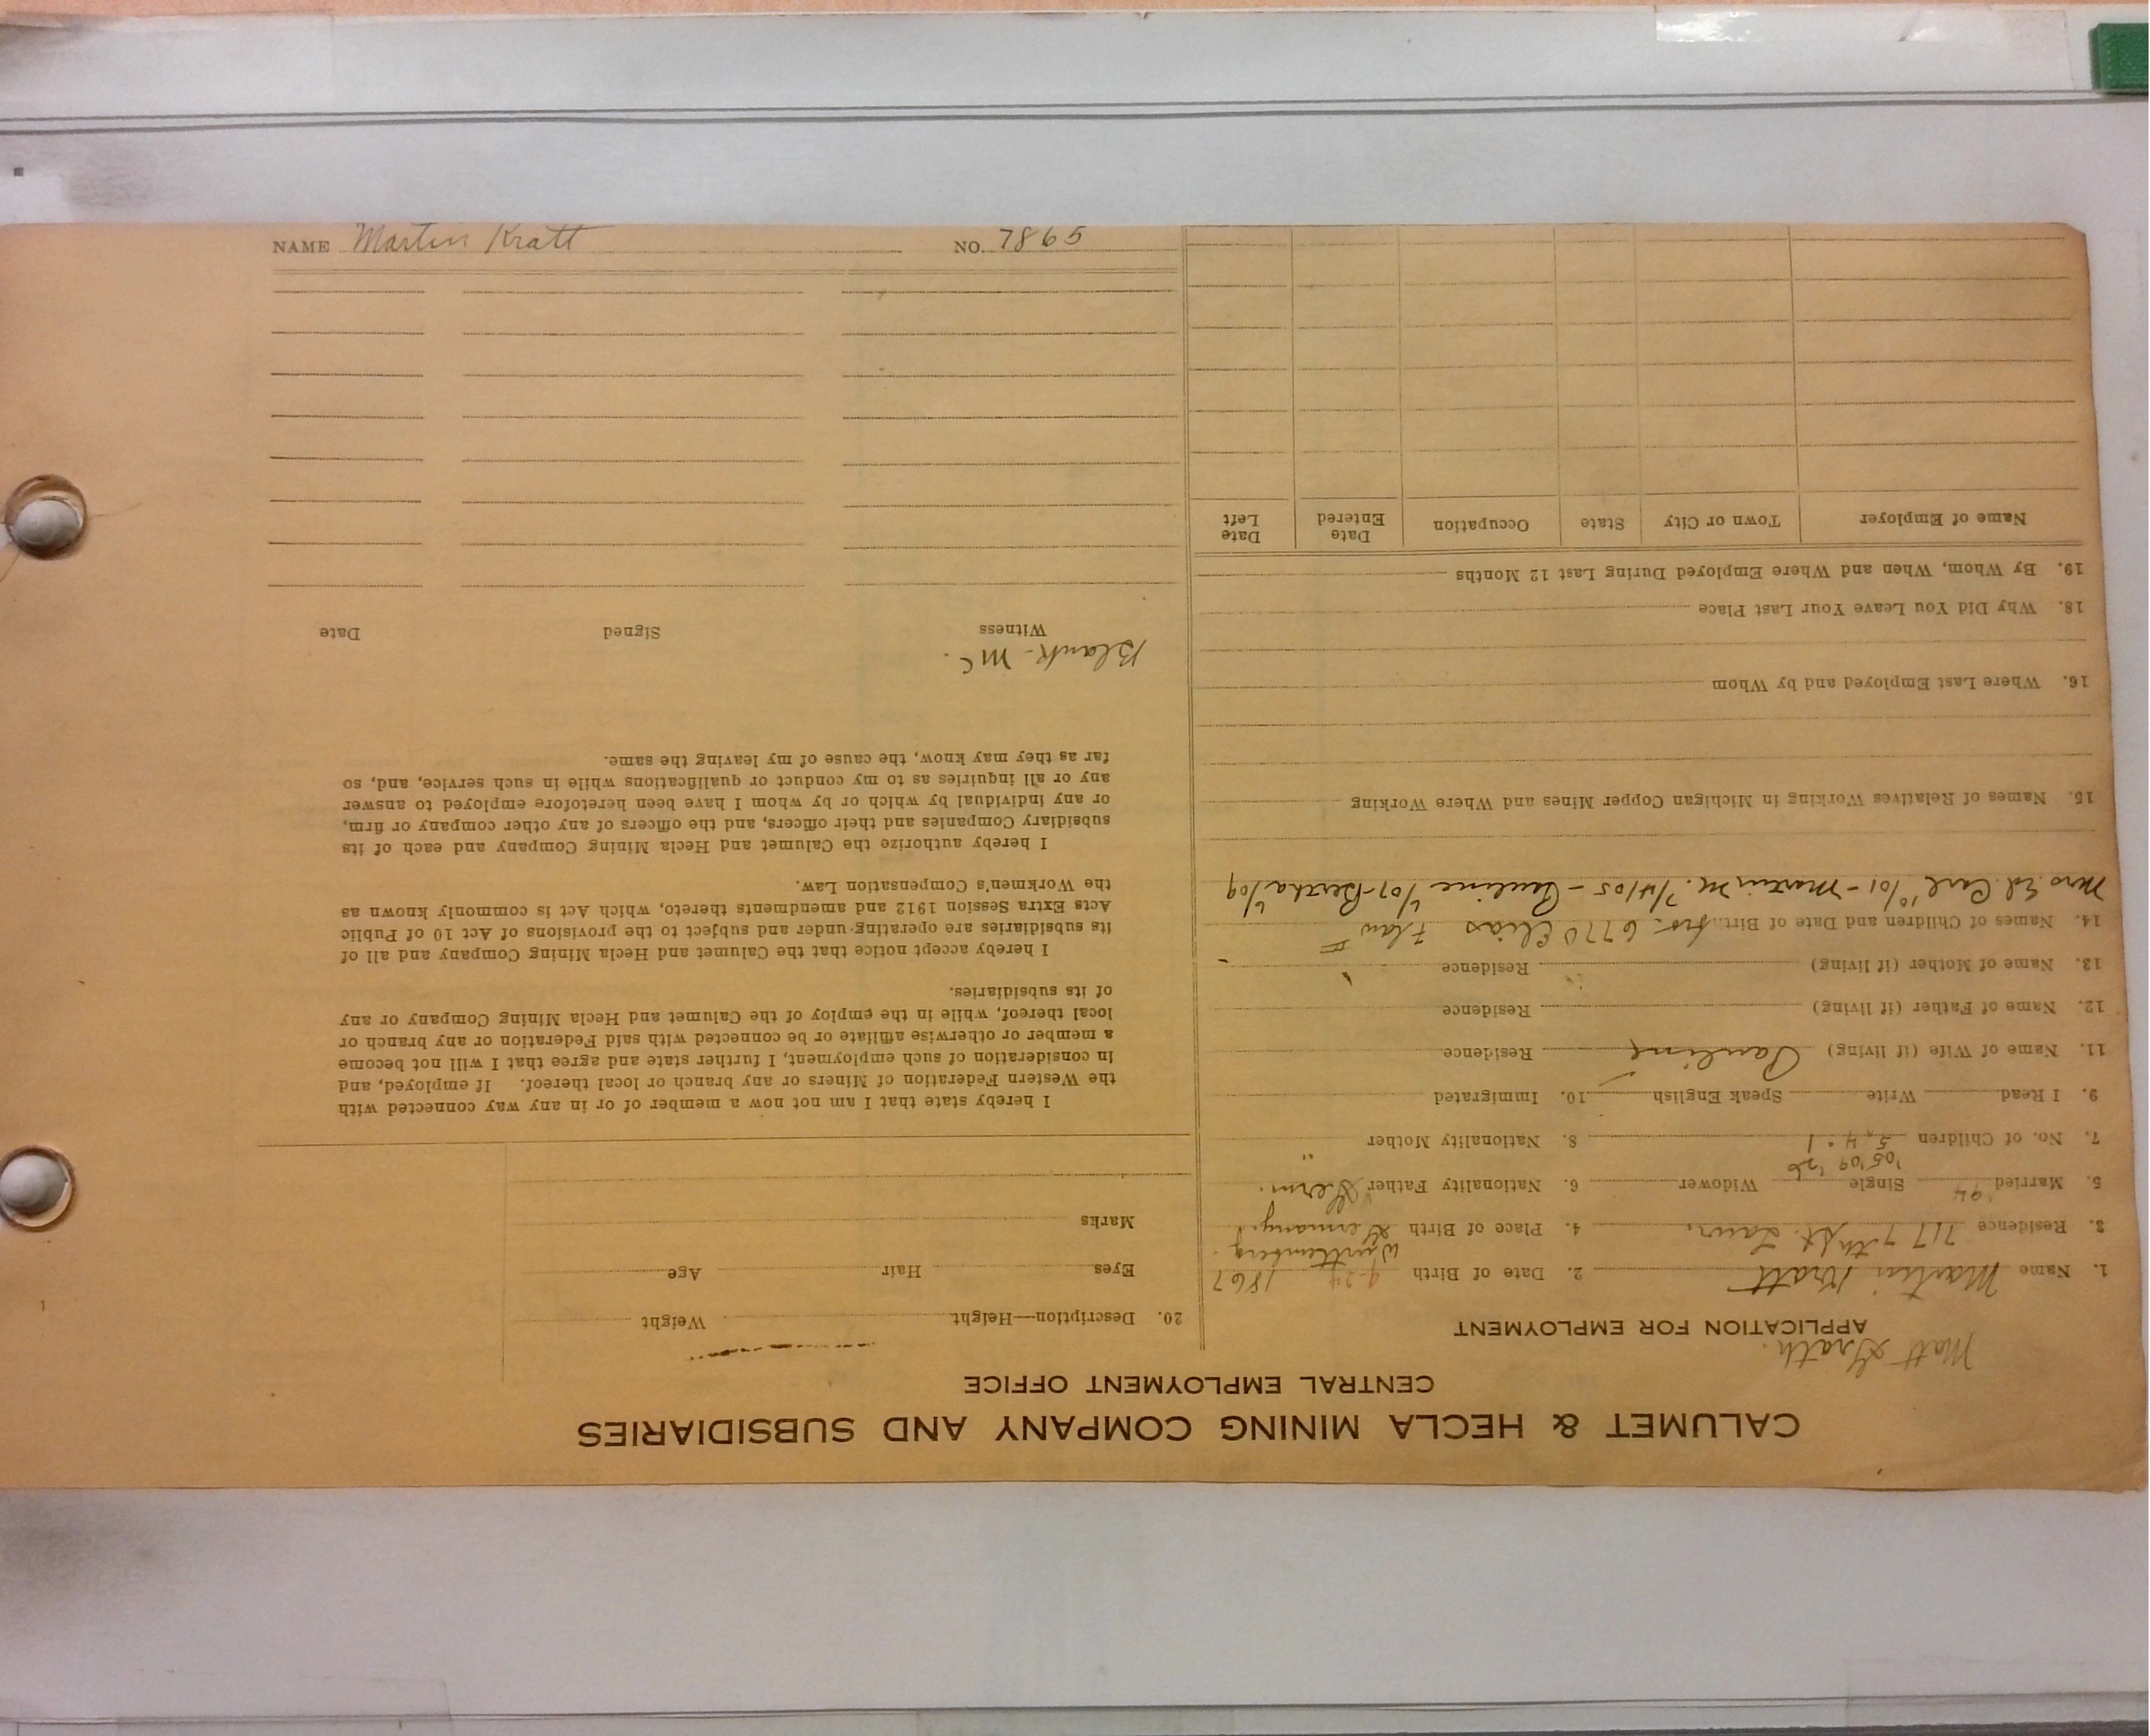 CALUMET & HECLA MINING COMPANY AND SUBSIDIARIES
CENTRAL EMPLOYMENT OFFICE
Matt Grath
APPLICATION FOR EMPLOYMENT
1. Name Martin Kratt 2. Date of Birth 9-24 1867
Wurttemberg
3. Residence 717 7th St. Laur. 4. Place of Birth Germany
5. Married '94 Single Widower 6. Nationality Father Germ.
'05 '09 '26
7. No. of Children 5 4 1 8. Nationality Mother "
9. I Read Write Speak English 10. Immigrated
11. Name of Wife (if living) Pauline Residence
12. Name of Father (if living) Residence
13. Name of Mother (if living) Residence
14. Names of Children and Date of Birth 6770 Elias
Mrs Ed. Carl 10/01 - Martin M. 7/4/05 - Pauline 4/07 - Bertha 6/09
15. Names of Relatives Working in Michigan Copper Mines and Where Working
16. Where Last Employed and by Whom
18. Why Did You Leave Your Last Place
19. By Whom, When and Where Employed During Last 12 Months
Name of Employer Town or City State Occupation Date Entered Date Left
20. Description—Height Weight
Eyes Hair Age
Marks
I hereby state that I am not now a member of or in any way connected with
the Western Federation of Miners or any branch or local thereof. If employed, and
in consideration of such employment, I further state and agree that I will not become
a member or otherwise affiliate or be connected with said Federation or any branch or
local thereof, while in the employ of the Calumet and Hecla Mining Company or any
of its subsidiaries.
I hereby accept notice that the Calumet and Hecla Mining Company and all of
its subsidiaries are operating under and subject to the provisions of Act 10 of Public
Acts Extra Session 1912 and amendments thereto, which Act is commonly known as
the Workmen's Compensation Law.
I hereby authorize the Calumet and Hecla Mining Company and each of its
subsidiary Companies and their officers, and the officers of any other company or firm,
or any individual by which or by whom I have been heretofore employed to answer
any or all inquiries as to my conduct or qualifications while in such service, and, so
far as they may know, the cause of my leaving the same.
Blank - Mc.
Witness Signed Date
NAME Martin Kratt NO. 7865